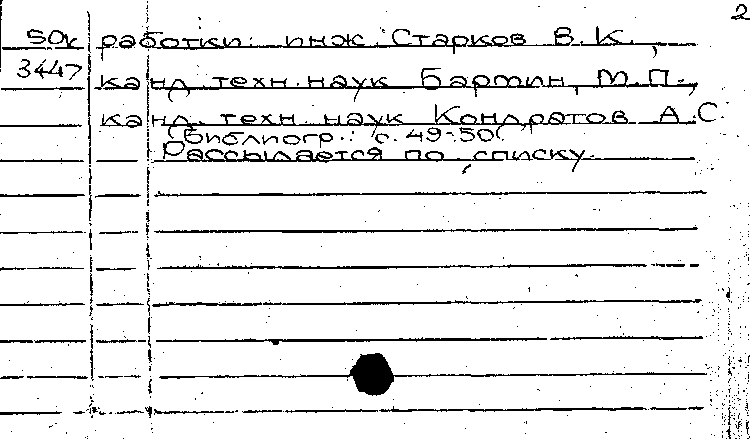 2
50к работки: инж. Старков В.К.,
3447 канд. техн. наук Бармин, М.П.,
канд. техн. наук Кондратов А.С.
Библиогр.: с. 49-50.
Рассылается по списку.